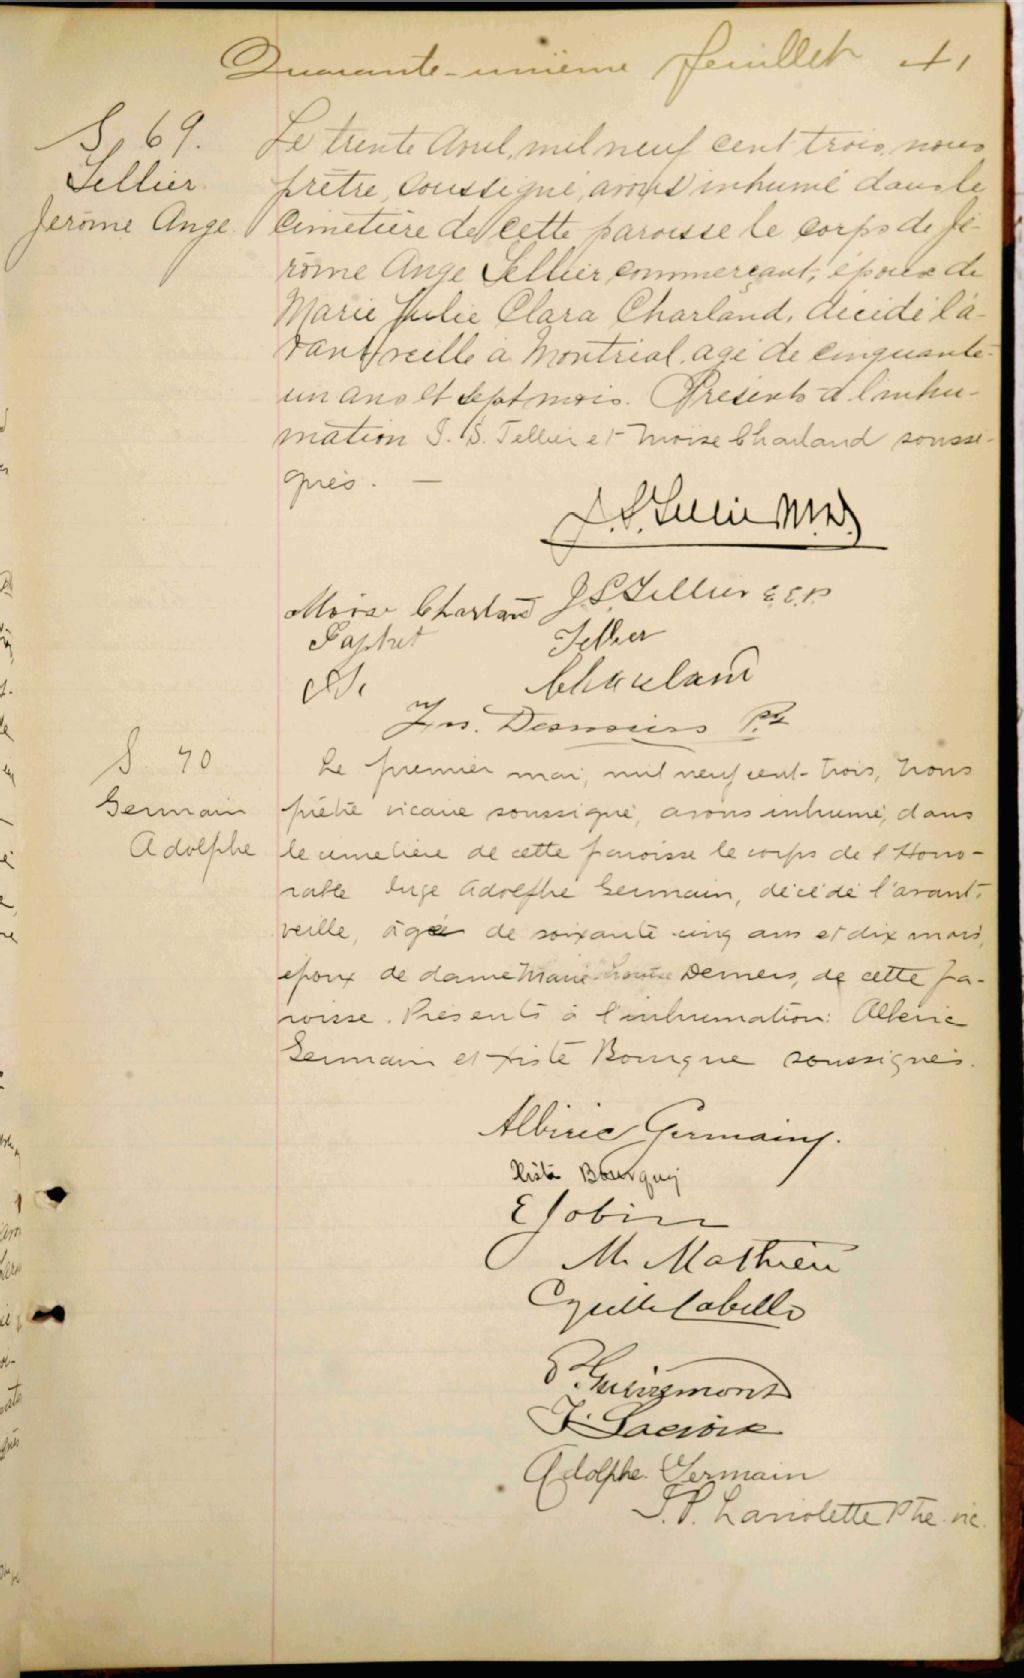 Quarante-unième feuillet 41
S. 69.
Tellier
Jérôme Ange.
Le trente Avril, mil neuf cent trois, nous
prêtre, soussigné, avons inhumé dans le
cimetière de cette paroisse le corps de Jé-
rôme Ange Tellier commerçant, époux de
Marie Julie Clara Charland, décédé l'a-
vant veille à Montréal agé de cinquante-
un ans et sept mois. Présents à l'inhu-
mation J. S. Tellier et Moïse Charland soussi-
gnés. —
J. S. Tellier M.D.
Moïse Charland J. S. Tellier E.E.P.
Tellier
Charland
Jos. Desnoyers Ptr
S. 70
Germain
Adolphe
Le premier mai, mil neuf cent-trois, nous
prêtre vicaire soussigné, avons inhumé, dans
le cimetière de cette paroisse le corps de l'Hono-
rable Juge Adolphe Germain, décédé l'avant-
veille, âgé de soixante cinq ans et dix mois,
époux de dame Marie Louise Demers, de cette pa-
roisse. Présents à l'inhumation: Albéric
Germain et Xiste Bourque soussignés.
Albéric Germain.
Xiste Bourque
E Jobin
M. Mathieu
Cyrille Labelle
P. Guèvremont
F. Lacroix
Adolphe Germain
J. P. Laviolette Ptre. vic.